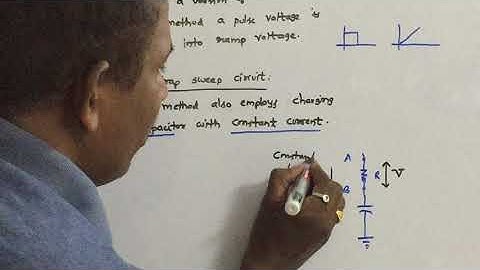 a
method a pulse voltage is
into ramp voltage.
sweep circuit.
method also employs charging
capacitor with constant current.
Constant
A
R
V
B